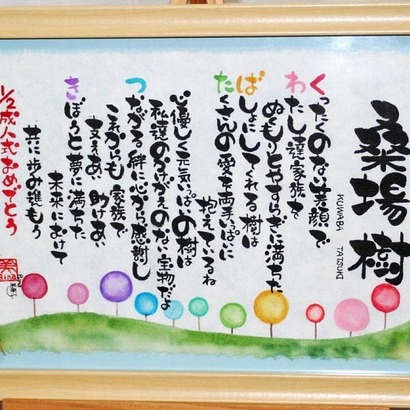 桑場 樹
KUWABA TATSUKI
くったくのない笑顔で
わたし達家族を
ぬくもりとやすらぎに満ちた
ばしょにしてくれる樹は
たくさんの愛を両手いっぱいに
抱えているね
心優しく元気いっぱいの樹は
私達のかけがえのない宝物だよ
つながる絆に心から感謝し
これからも家族で
支えあい助けあい
きぼうと夢に満ちた
未来にむけて
共に歩み進もう
1/2成人式おめでとう